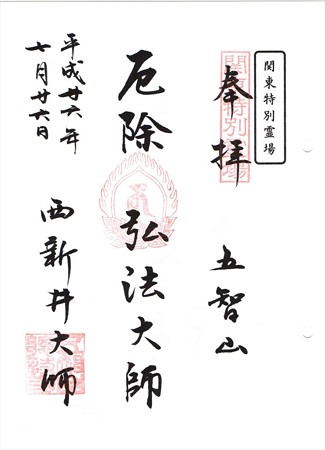 関東特別霊場
奉拝 五智山
厄除 弘法大師
西新井大師
平成廿六年
七月廿六日